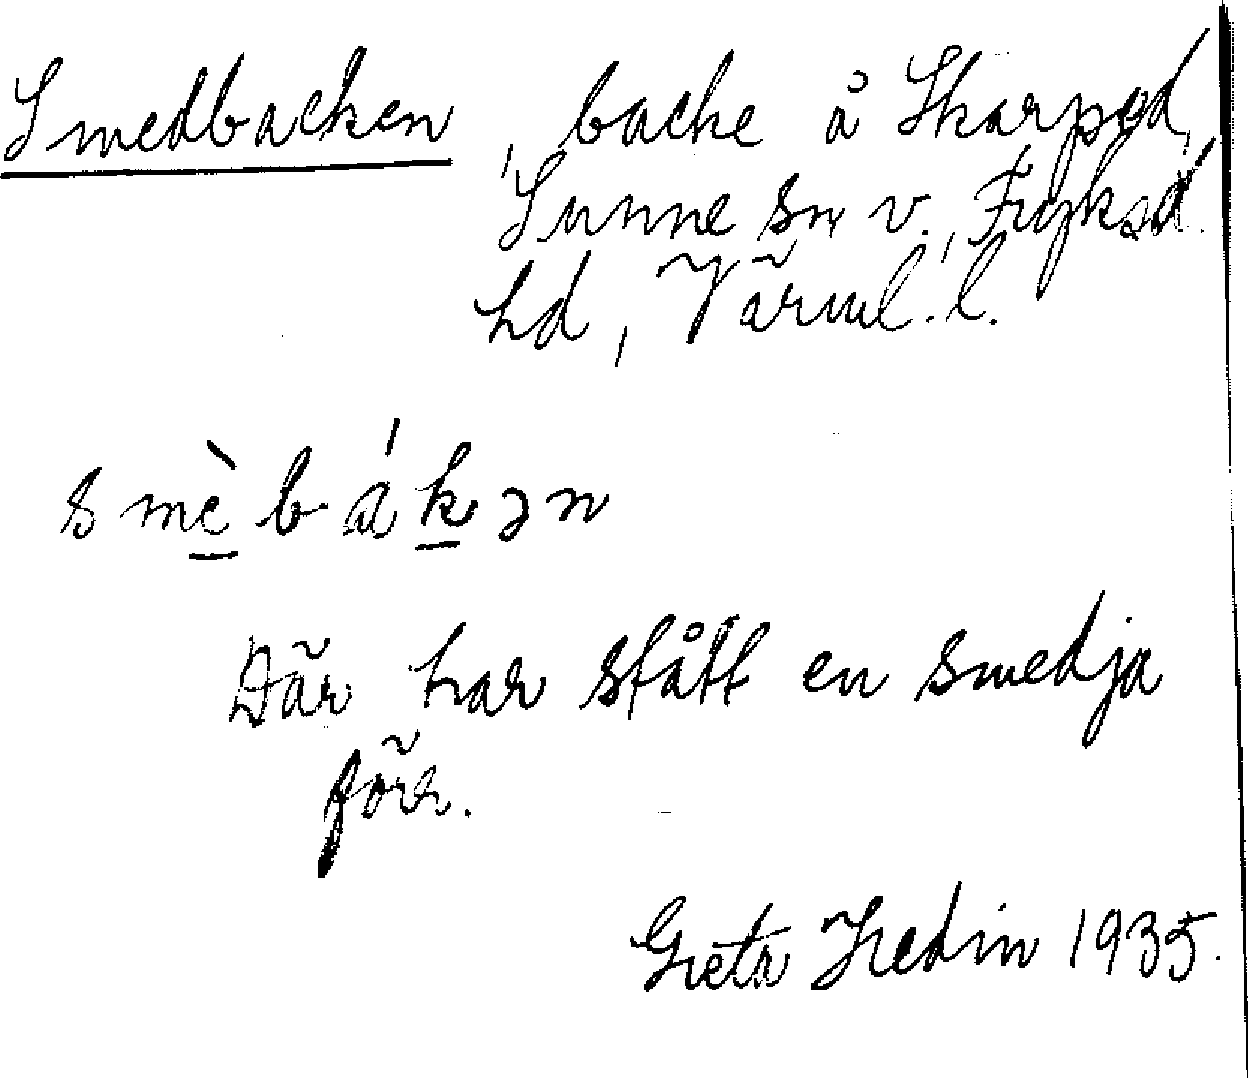 Smedbacken, backe å Skarped,
Sunne sn v., Fryksd.
hd, Värml. l.
smèbákən
Där har stått en smedja
förr.
Greta Hedin 1935.